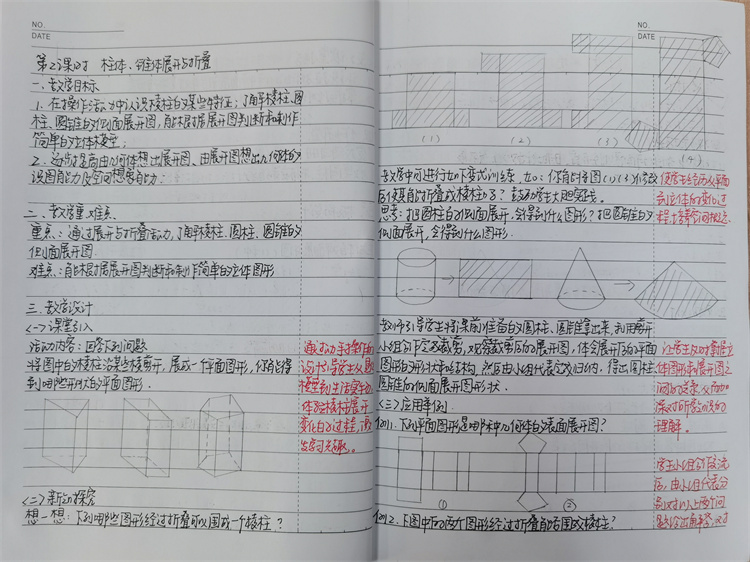 NO.
DATE
第2课时 柱体、锥体展开与折叠
一、教学目标
1、在操作活动中认识棱柱的某些特征；了解棱柱、圆
柱、圆锥的侧面展开图，能根据展开图判断和制作
简单的立体模型；
2、逐步提高由几何体想出展开图、由展开图想出几何体的
识图能力及空间想象能力.
二、教学重难点
重点：通过展开与折叠活动，了解棱柱、圆柱、圆锥的
侧面展开图
难点：能根据展开图判断和制作简单的立体图形
三、教学设计
(一)课堂引入
活动内容：回答下列问题
将图中的棱柱沿某些棱剪开，展成一个平面图形，你能得
到哪些形状的平面图形.
通过动手操作的
模型到生活实物的
体会棱柱展开
变化的过程，激
发学习兴趣。
(二)新知探究
想一想：下列哪些图形经过折叠可以围成一个棱柱？
NO.
DATE
(1)
(2)
(3)
(4)
教学中可进行如下变式训练，如：你能将图(1)(3)修改
后使其能折叠成棱柱吗？鼓励学生大胆实践。
思考：把圆柱的侧面展开，会得到什么图形？把圆锥的
侧面展开，会得到什么图形.
使学生经历从平面
到立体的变化过
教师引导学生将课前准备的圆柱、圆锥拿出来，利用剪刀
小组合作完成裁剪，观察裁剪后的展开图，体会展开后的平面
图形的形状和结构，然后由小组代表交流归纳，得出圆柱、
圆锥的侧面展开图形状.
让学生及时掌握立
体图形和展开图之
间的联系，从而加
深对所学知识的
理解。
(三)应用举例
例1. 下列平面图形是哪种几何体的表面展开图？
①
②
学生小组合作交流
后，由小组代表分
别对以上两个问
题给出解答，对
例2. 下图中的两个图形经过折叠能否围成棱柱？